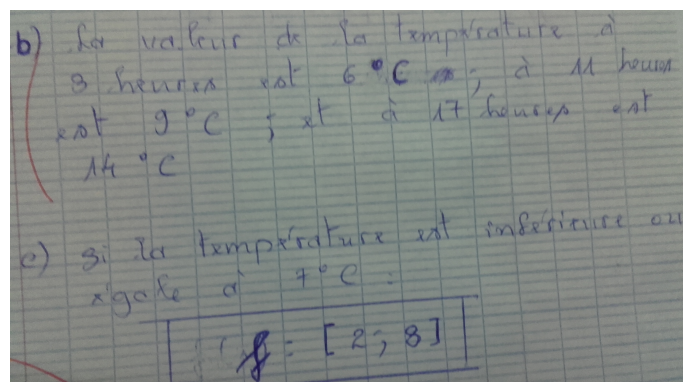 b) La valeur de la température à
3 heures est 6 °C ; à 11 heures
est 9 °C ; et à 17 heures est
14 °C
c) si la température est inférieure ou
égale à 7 °C :
= [ 2 ; 8 ]